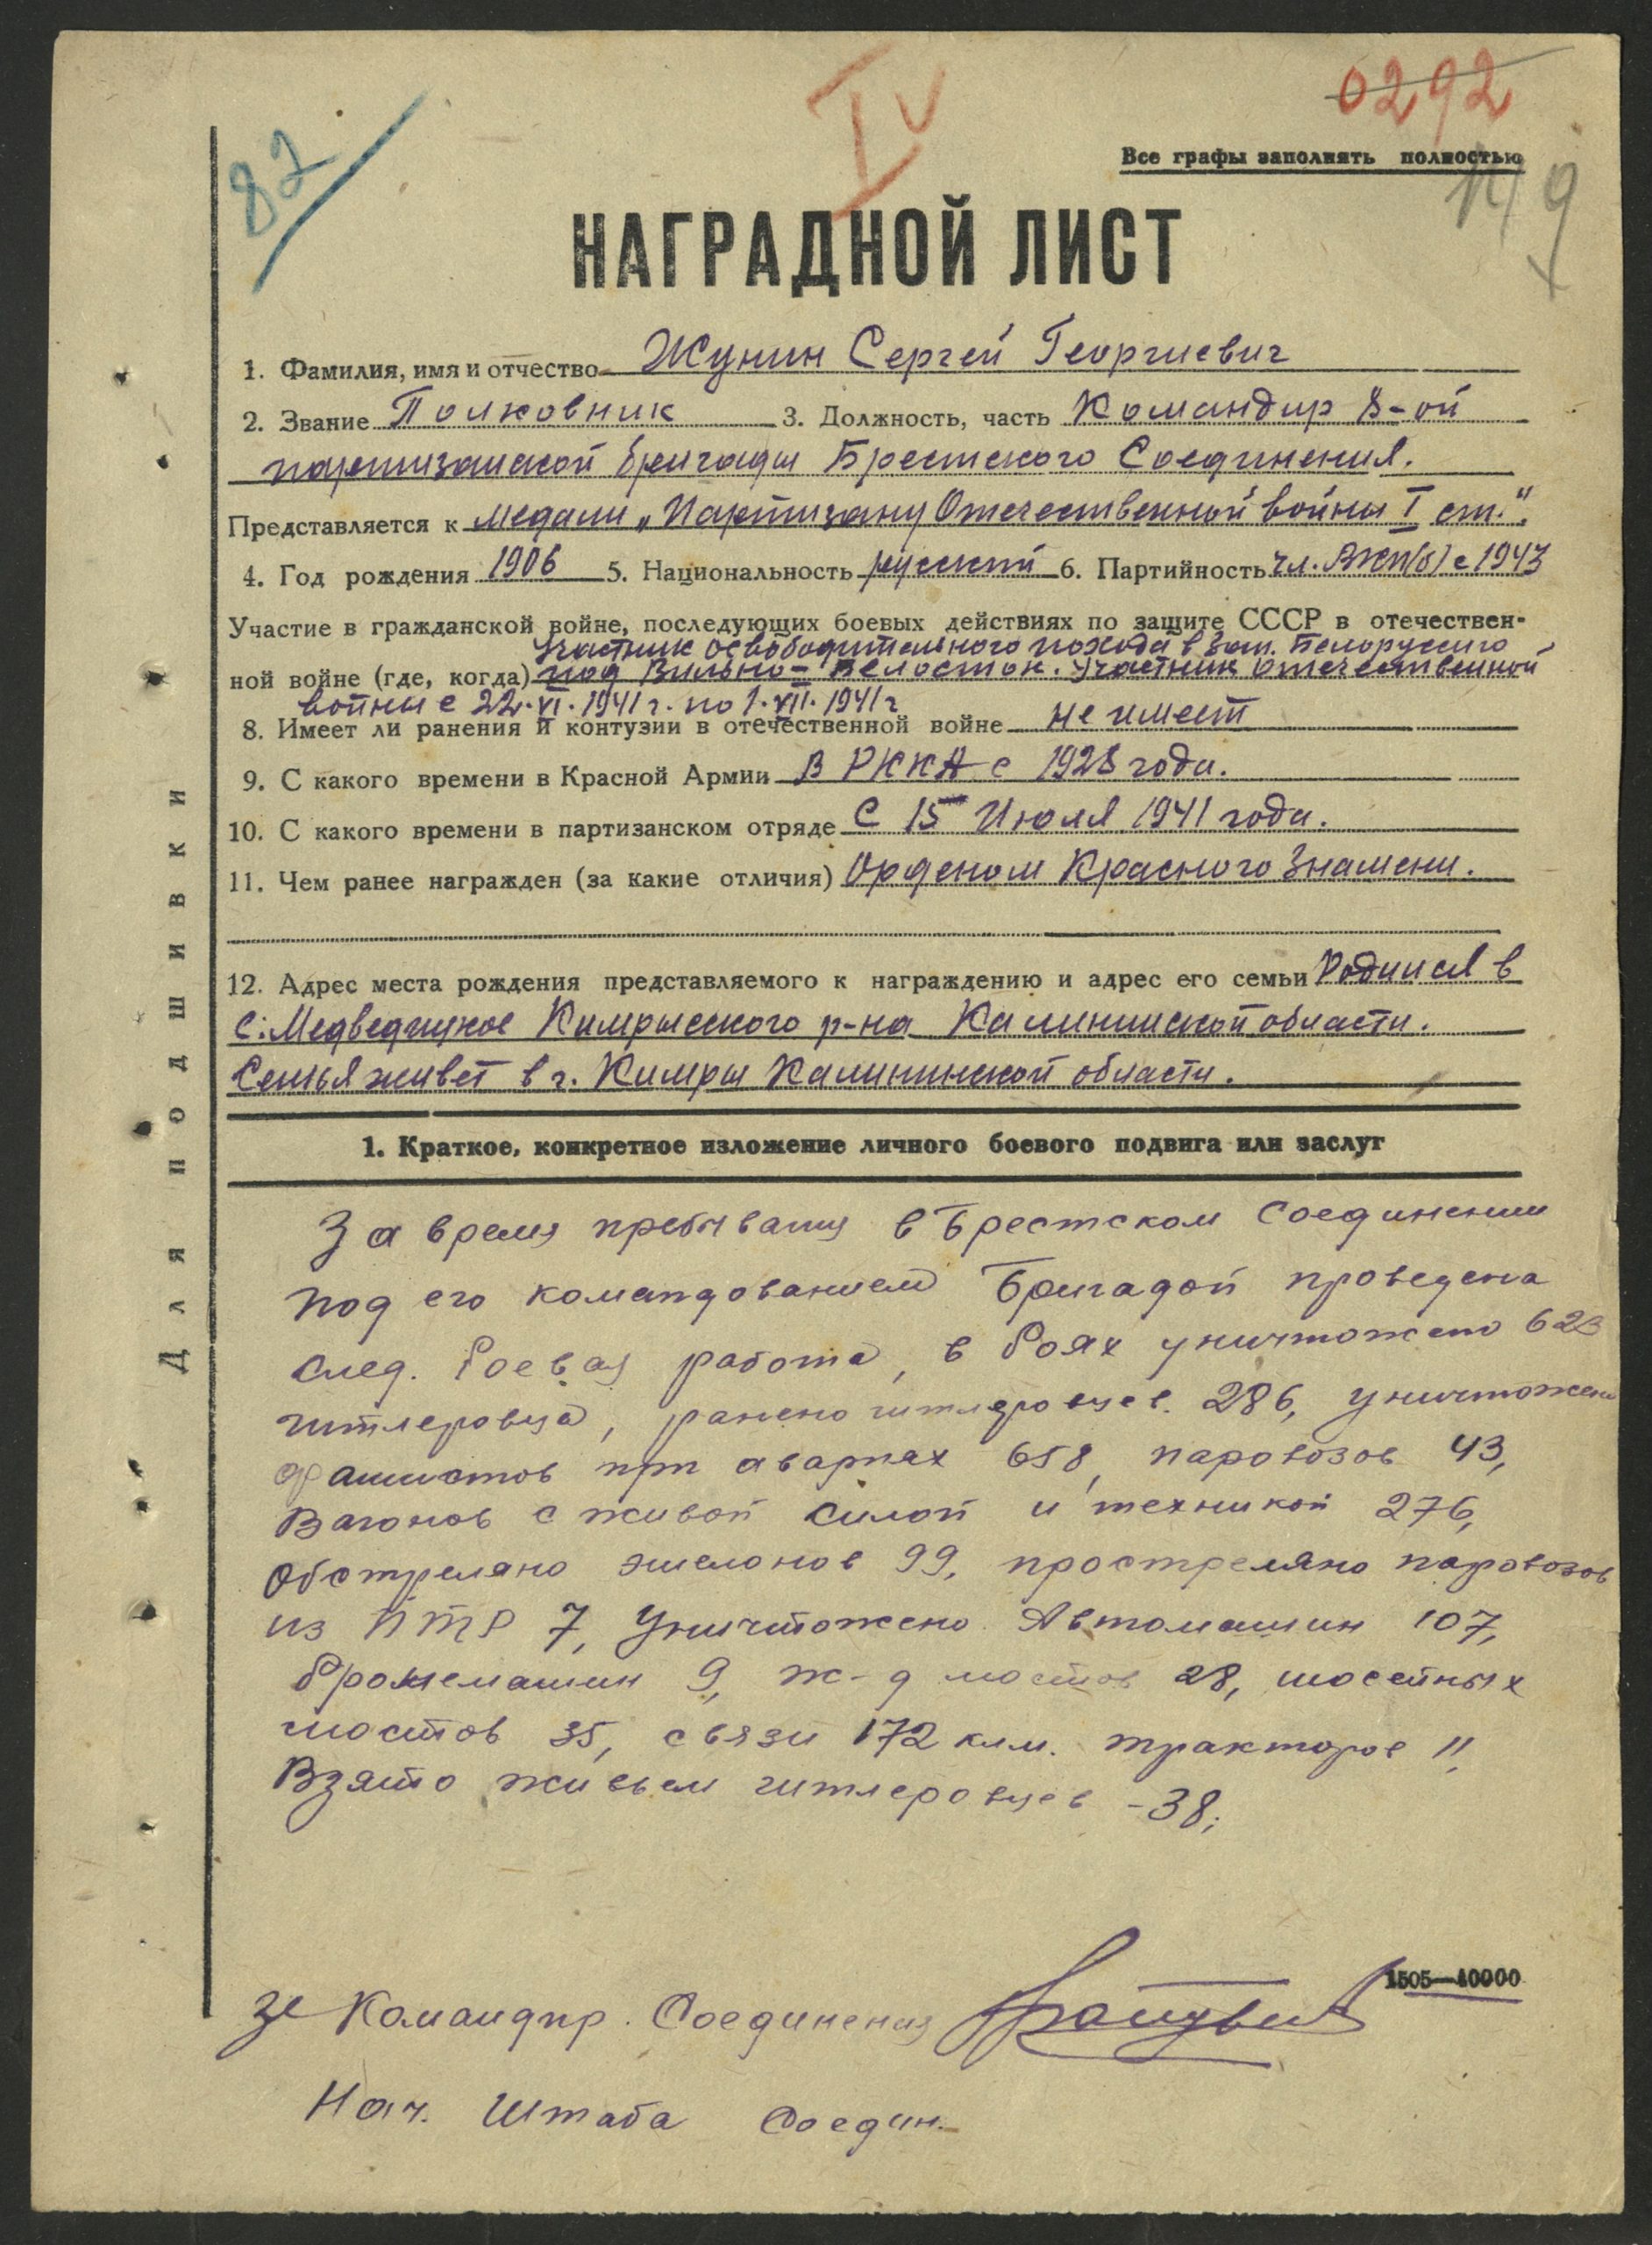 0292
IV
82
Все графы заполнять полностью
НАГРАДНОЙ ЛИСТ
1. Фамилия, имя и отчество Жунин Сергей Георгиевич
2. Звание Полковник 3. Должность, часть Командир 8-ой
партизанской бригады Брестского Соединения.
Представляется к медали „Партизану Отечественной войны I ст.".
4. Год рождения 1906 5. Национальность русский 6. Партийность чл. ВКП(б) с 1943
Участие в гражданской войне, последующих боевых действиях по защите СССР в отечествен-
Участник освободительного похода в Зап. Белоруссию
ной войне (где, когда) под Вильно-Белосток. Участник отечественной
войны с 22.VI.1941 г. по 1.VII.1941 г
8. Имеет ли ранения и контузии в отечественной войне не имеет
9. С какого времени в Красной Армии В РККА с 1928 года.
10. С какого времени в партизанском отряде С 15 Июля 1941 года.
11. Чем ранее награжден (за какие отличия) Орденом Красного Знамени.
12. Адрес места рождения представляемого к награждению и адрес его семьи Родился в
с. Медведицкое Кимрского р-на Калининской области.
Семья живет в г. Кимры Калининской области.
1. Краткое, конкретное изложение личного боевого подвига или заслуг
За время пребывания в Брестском Соединении
под его командованием Бригадой проведена
след. боевая работа, в боях уничтожено 623
гитлеровца, ранено гитлеровцев 286, уничтожено
фашистов при авариях 658, паровозов 43,
Вагонов с живой силой и техникой 276,
Обстреляно эшелонов 99, прострелено паровозов
из ПТР 7, Уничтожено Автомашин 107,
бронемашин 9, ж-д мостов 28, шосейных
мостов 35, связи 172 клм. тракторов 11,
Взято живьем гитлеровцев -38;
1505—10000
За Командир. Соединения
Нач. Штаба Соедин.
Для подшивки